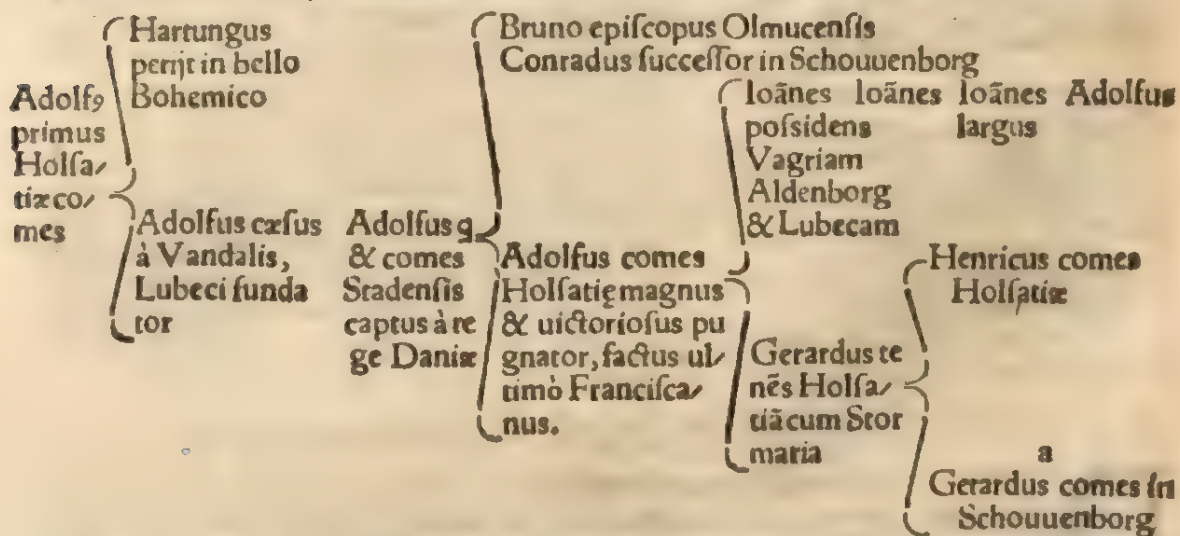 Adolfꝯ
primus
Holſa⸗
tiæ co⸗
mes
Hartungus
perijt in bello
Bohemico
Adolfus cæſus
à Vandalis,
Lubeci funda
tor
Adolfus q
& comes
Stadenſis
captus à re
ge Daniæ
Bruno epiſcopus Olmucenſis
Conradus ſucceſſor in Schouuenborg
Adolfus comes
Holſatię magnus
& uictorioſus pu
gnator, factus ul⸗
timò Franciſca⸗
nus.
Ioãnes Ioãnes Ioãnes Adolfus
poſsidens largus
Vagriam
Aldenborg
& Lubecam
Gerardus te
nẽs Holſa⸗
tiã cum Stor
maria
Henricus comes
Holſatiæ
a
Gerardus comes in
Schouuenborg